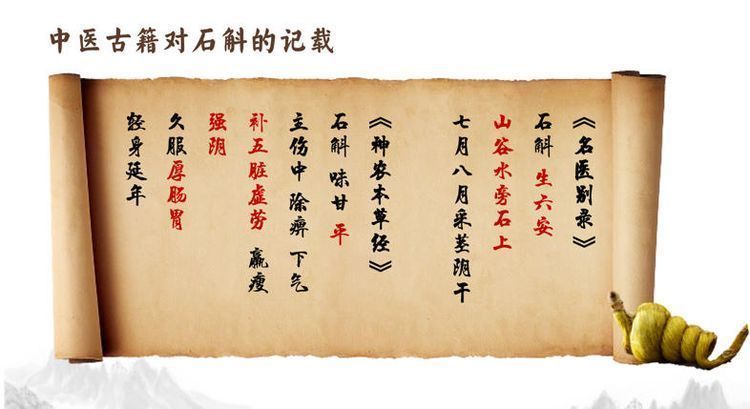 中医古籍对石斛的记载
《名医别录》
石斛 生六安
山谷水旁石上
七月八月采茎阴干
《神农本草经》
石斛 味甘 平
主伤中 除痹 下气
补五脏虚劳 羸瘦
强阴
久服厚肠胃
轻身延年